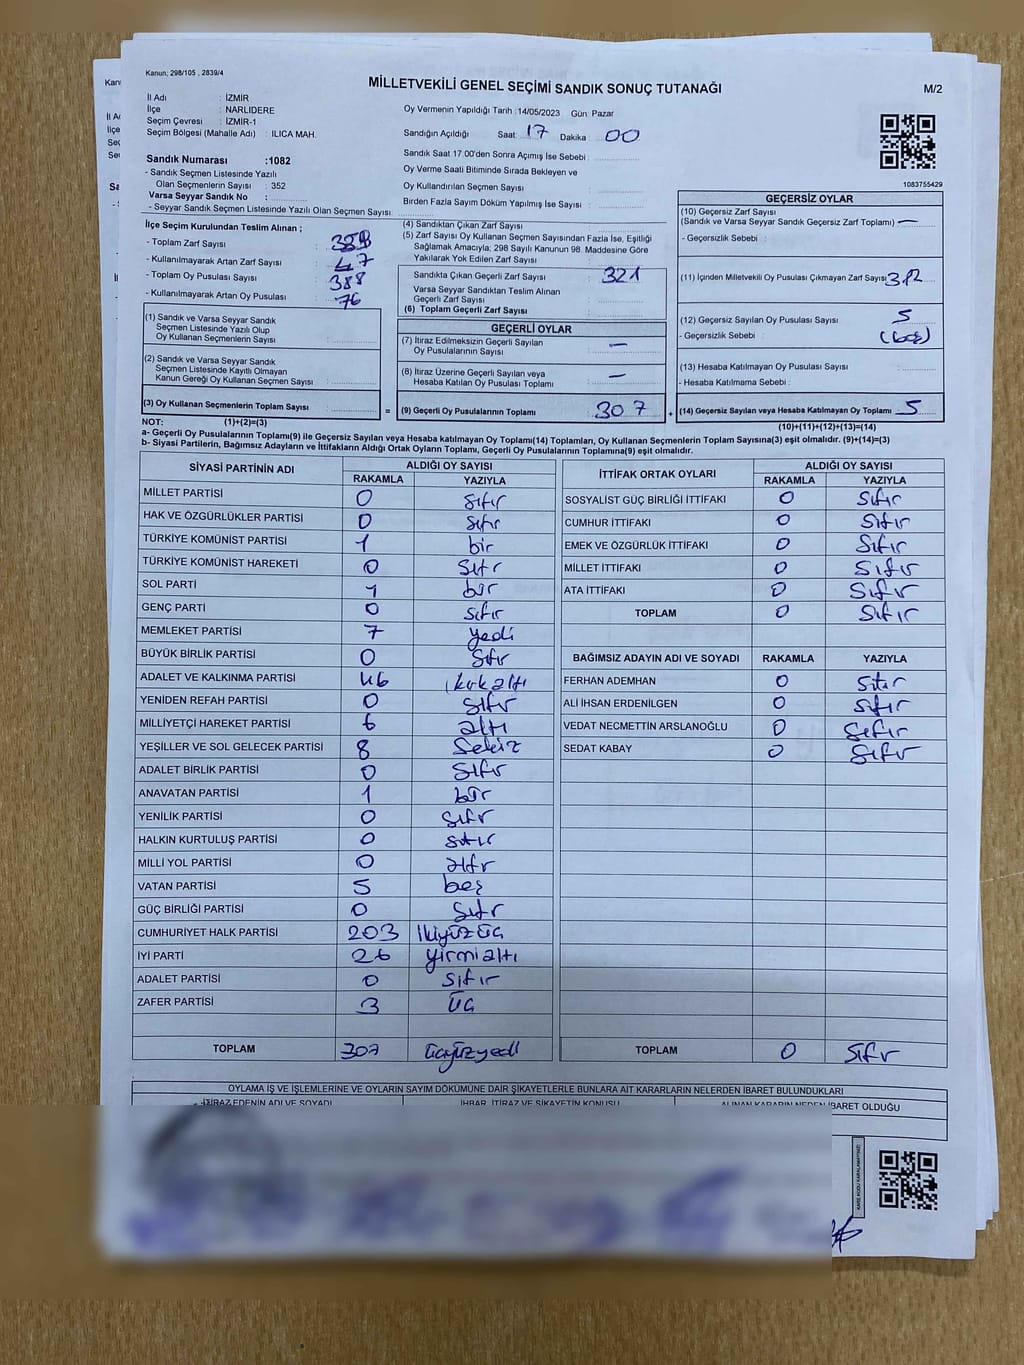 Kanun; 298/105 , 2839/4
MİLLETVEKİLİ GENEL SEÇİMİ SANDIK SONUÇ TUTANAĞI
M/2
İl Adı : İZMİR
İlçe : NARLIDERE
Seçim Çevresi : İZMİR-1
Seçim Bölgesi (Mahalle Adı) : ILICA MAH.
Oy Vermenin Yapıldığı Tarih :14/05/2023 Gün: Pazar
Sandığın Açıldığı Saat: 17 Dakika : 00
Sandık Saat 17 00'den Sonra Açımış İse Sebebi :
Oy Verme Saati Bitiminde Sırada Bekleyen ve
Oy Kullandırılan Seçmen Sayısı :
Birden Fazla Sayım Döküm Yapılmış İse Sayısı :
Sandık Numarası :1082
- Sandık Seçmen Listesinde Yazılı
Olan Seçmenlerin Sayısı : 352
Varsa Seyyar Sandık No :
- Seyyar Sandık Seçmen Listesinde Yazılı Olan Seçmen Sayısı :
1083755429
İlçe Seçim Kurulundan Teslim Alınan ;
- Toplam Zarf Sayısı :
- Kullanılmayarak Artan Zarf Sayısı : 47
- Toplam Oy Pusulası Sayısı : 388
- Kullanılmayarak Artan Oy Pusulası : 76
(1) Sandık ve Varsa Seyyar Sandık
Seçmen Listesinde Yazılı Olup
Oy Kullanan Seçmenlerin Sayısı :
(2) Sandık ve Varsa Seyyar Sandık
Seçmen Listesinde Kayıtlı Olmayan
Kanun Gereği Oy Kullanan Seçmen Sayısı :
(3) Oy Kullanan Seçmenlerin Toplam Sayısı : =
(4) Sandıktan Çıkan Zarf Sayısı :
(5) Zarf Sayısı Oy Kullanan Seçmen Sayısından Fazla İse, Eşitliği
Sağlamak Amacıyla; 298 Sayılı Kanunun 98. Maddesine Göre
Yakılarak Yok Edilen Zarf Sayısı :
Sandıkta Çıkan Geçerli Zarf Sayısı : 321
Varsa Seyyar Sandıktan Teslim Alınan
Geçerli Zarf Sayısı :
(6) Toplam Geçerli Zarf Sayısı :
GEÇERLİ OYLAR
(7) İtiraz Edilmeksizin Geçerli Sayılan
Oy Pusulalarının Sayısı : —
(8) İtiraz Üzerine Geçerli Sayılan veya
Hesaba Katılan Oy Pusulası Toplamı : —
(9) Geçerli Oy Pusulalarının Toplamı : 307 +
GEÇERSİZ OYLAR
(10) Geçersiz Zarf Sayısı
(Sandık ve Varsa Seyyar Sandık Geçersiz Zarf Toplamı) : —
- Geçersizlik Sebebi :
(11) İçinden Milletvekili Oy Pusulası Çıkmayan Zarf Sayısı : 312
(12) Geçersiz Sayılan Oy Pusulası Sayısı : 5
- Geçersizlik Sebebi : (beş)
(13) Hesaba Katılmayan Oy Pusulası Sayısı :
- Hesaba Katılmama Sebebi :
(14) Geçersiz Sayılan veya Hesaba Katılmayan Oy Toplamı : 5
NOT: (1)+(2)=(3)
(10)+(11)+(12)+(13)=(14)
a- Geçerli Oy Pusulalarının Toplamı(9) ile Geçersiz Sayılan veya Hesaba katılmayan Oy Toplamı(14) Toplamları, Oy Kullanan Seçmenlerin Toplam Sayısına(3) eşit olmalıdır. (9)+(14)=(3)
b- Siyasi Partilerin, Bağımsız Adayların ve İttifakların Aldığı Ortak Oyların Toplamı, Geçerli Oy Pusulalarının Toplamına(9) eşit olmalıdır.
SİYASİ PARTİNİN ADI ALDIĞI OY SAYISI
RAKAMLA YAZIYLA
MİLLET PARTİSİ 0 sıfır
HAK VE ÖZGÜRLÜKLER PARTİSİ 0 sıfır
TÜRKİYE KOMÜNİST PARTİSİ 1 bir
TÜRKİYE KOMÜNİST HAREKETİ 0 sıfır
SOL PARTİ 1 bir
GENÇ PARTİ 0 sıfır
MEMLEKET PARTİSİ 7 yedi
BÜYÜK BİRLİK PARTİSİ 0 sıfır
ADALET VE KALKINMA PARTİSİ 46 kırkaltı
YENİDEN REFAH PARTİSİ 0 sıfır
MİLLİYETÇİ HAREKET PARTİSİ 6 altı
YEŞİLLER VE SOL GELECEK PARTİSİ 8 sekiz
ADALET BİRLİK PARTİSİ 0 sıfır
ANAVATAN PARTİSİ 1 bir
YENİLİK PARTİSİ 0 sıfır
HALKIN KURTULUŞ PARTİSİ 0 sıfır
MİLLİ YOL PARTİSİ 0 sıfır
VATAN PARTİSİ 5 beş
GÜÇ BİRLİĞİ PARTİSİ 0 sıfır
CUMHURİYET HALK PARTİSİ 203 ikiyüzüç
İYİ PARTİ 26 yirmialtı
ADALET PARTİSİ 0 sıfır
ZAFER PARTİSİ 3 üç
TOPLAM 307 üçyüzyedi
İTTİFAK ORTAK OYLARI ALDIĞI OY SAYISI
RAKAMLA YAZIYLA
SOSYALİST GÜÇ BİRLİĞİ İTTİFAKI 0 sıfır
CUMHUR İTTİFAKI 0 sıfır
EMEK VE ÖZGÜRLÜK İTTİFAKI 0 sıfır
MİLLET İTTİFAKI 0 sıfır
ATA İTTİFAKI 0 sıfır
TOPLAM 0 sıfır
BAĞIMSIZ ADAYIN ADI VE SOYADI RAKAMLA YAZIYLA
FERHAN ADEMHAN 0 sıfır
ALİ İHSAN ERDENİLGEN 0 sıfır
VEDAT NECMETTİN ARSLANOĞLU 0 sıfır
SEDAT KABAY 0 sıfır
TOPLAM 0 sıfır
OYLAMA İŞ VE İŞLEMLERİNE VE OYLARIN SAYIM DÖKÜMÜNE DAİR ŞİKAYETLERLE BUNLARA AİT KARARLARIN NELERDEN İBARET BULUNDUKLARI
İTİRAZ EDENİN ADI VE SOYADI İHBAR, İTİRAZ VE ŞİKAYETİN KONUSU ALINAN KARARIN NEDEN İBARET OLDUĞU